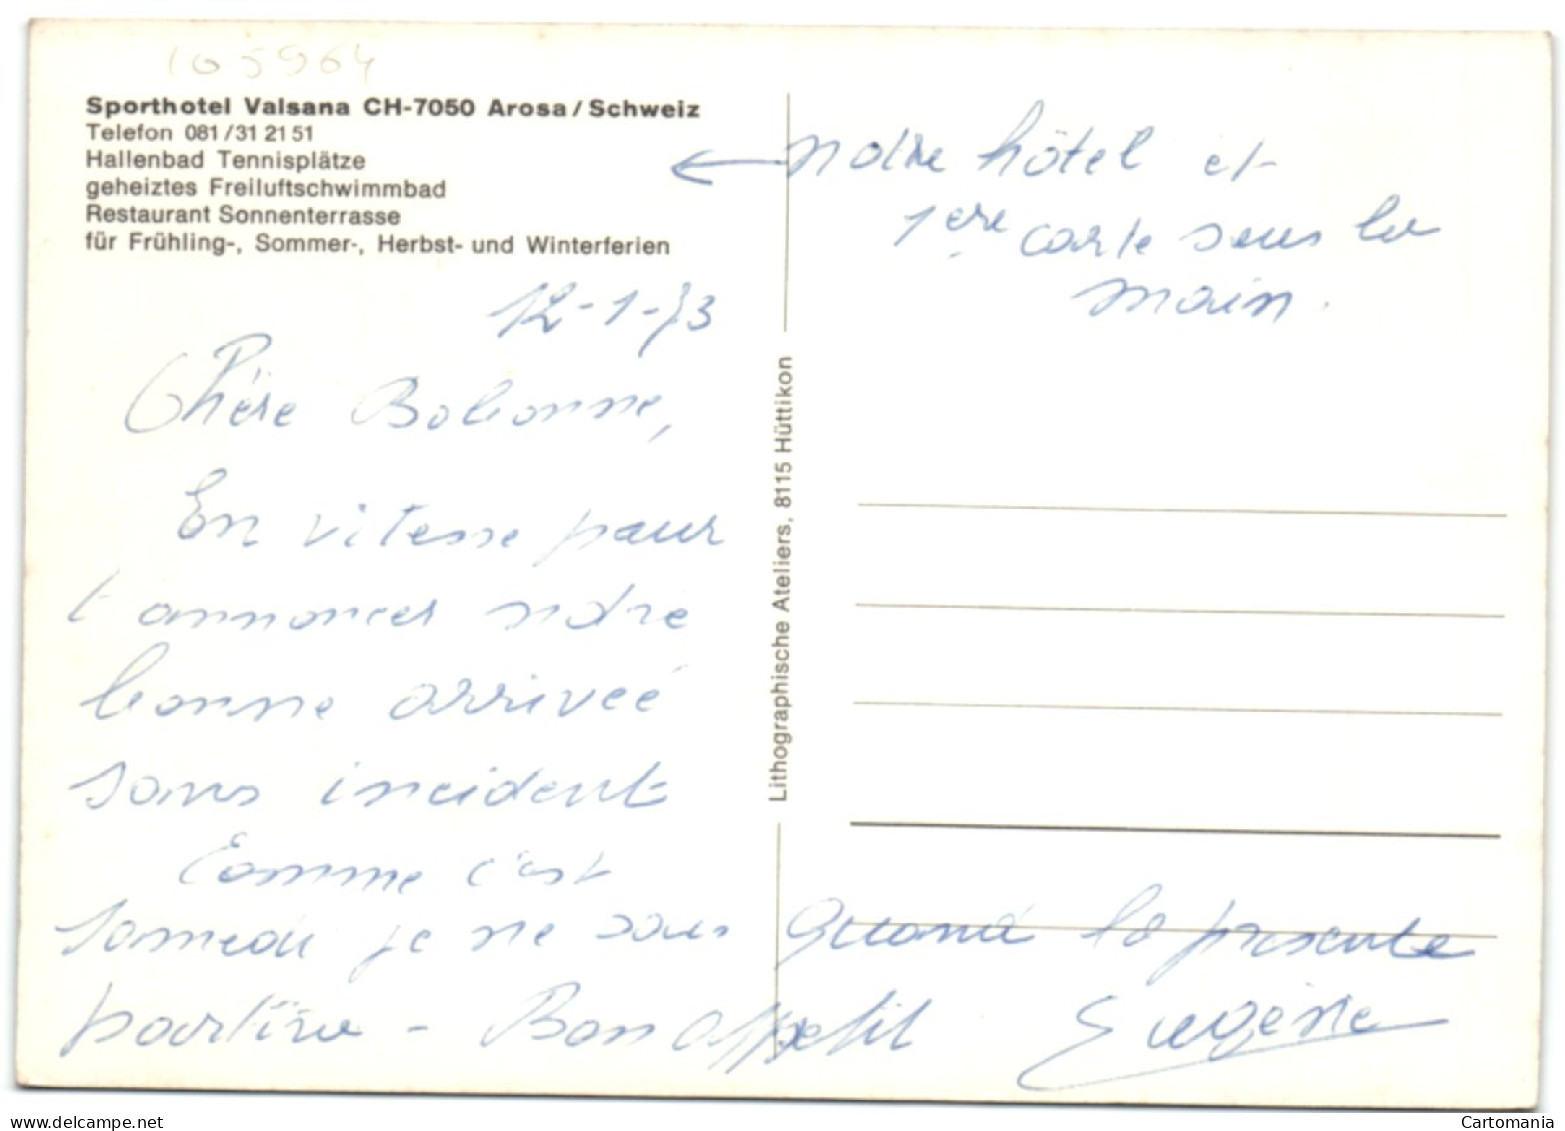 105964
Sporthotel Valsana CH-7050 Arosa/Schweiz
Telefon 081/31 21 51
Hallenbad Tennisplätze
geheiztes Freiluftschwimmbad
Restaurant Sonnenterrasse
für Frühling-, Sommer-, Herbst- und Winterferien
← notre hôtel et
1ere carte sous la
main.
12-1-73
Chère Bobonne,
En vitesse pour
t'annoncer notre
bonne arriveé
sans incident
Comme c'est
samedi je ne sais quand la présente
partira - Bon appétit Eugène
Lithographische Ateliers, 8115 Hüttikon
delcampe.net
Cartomania